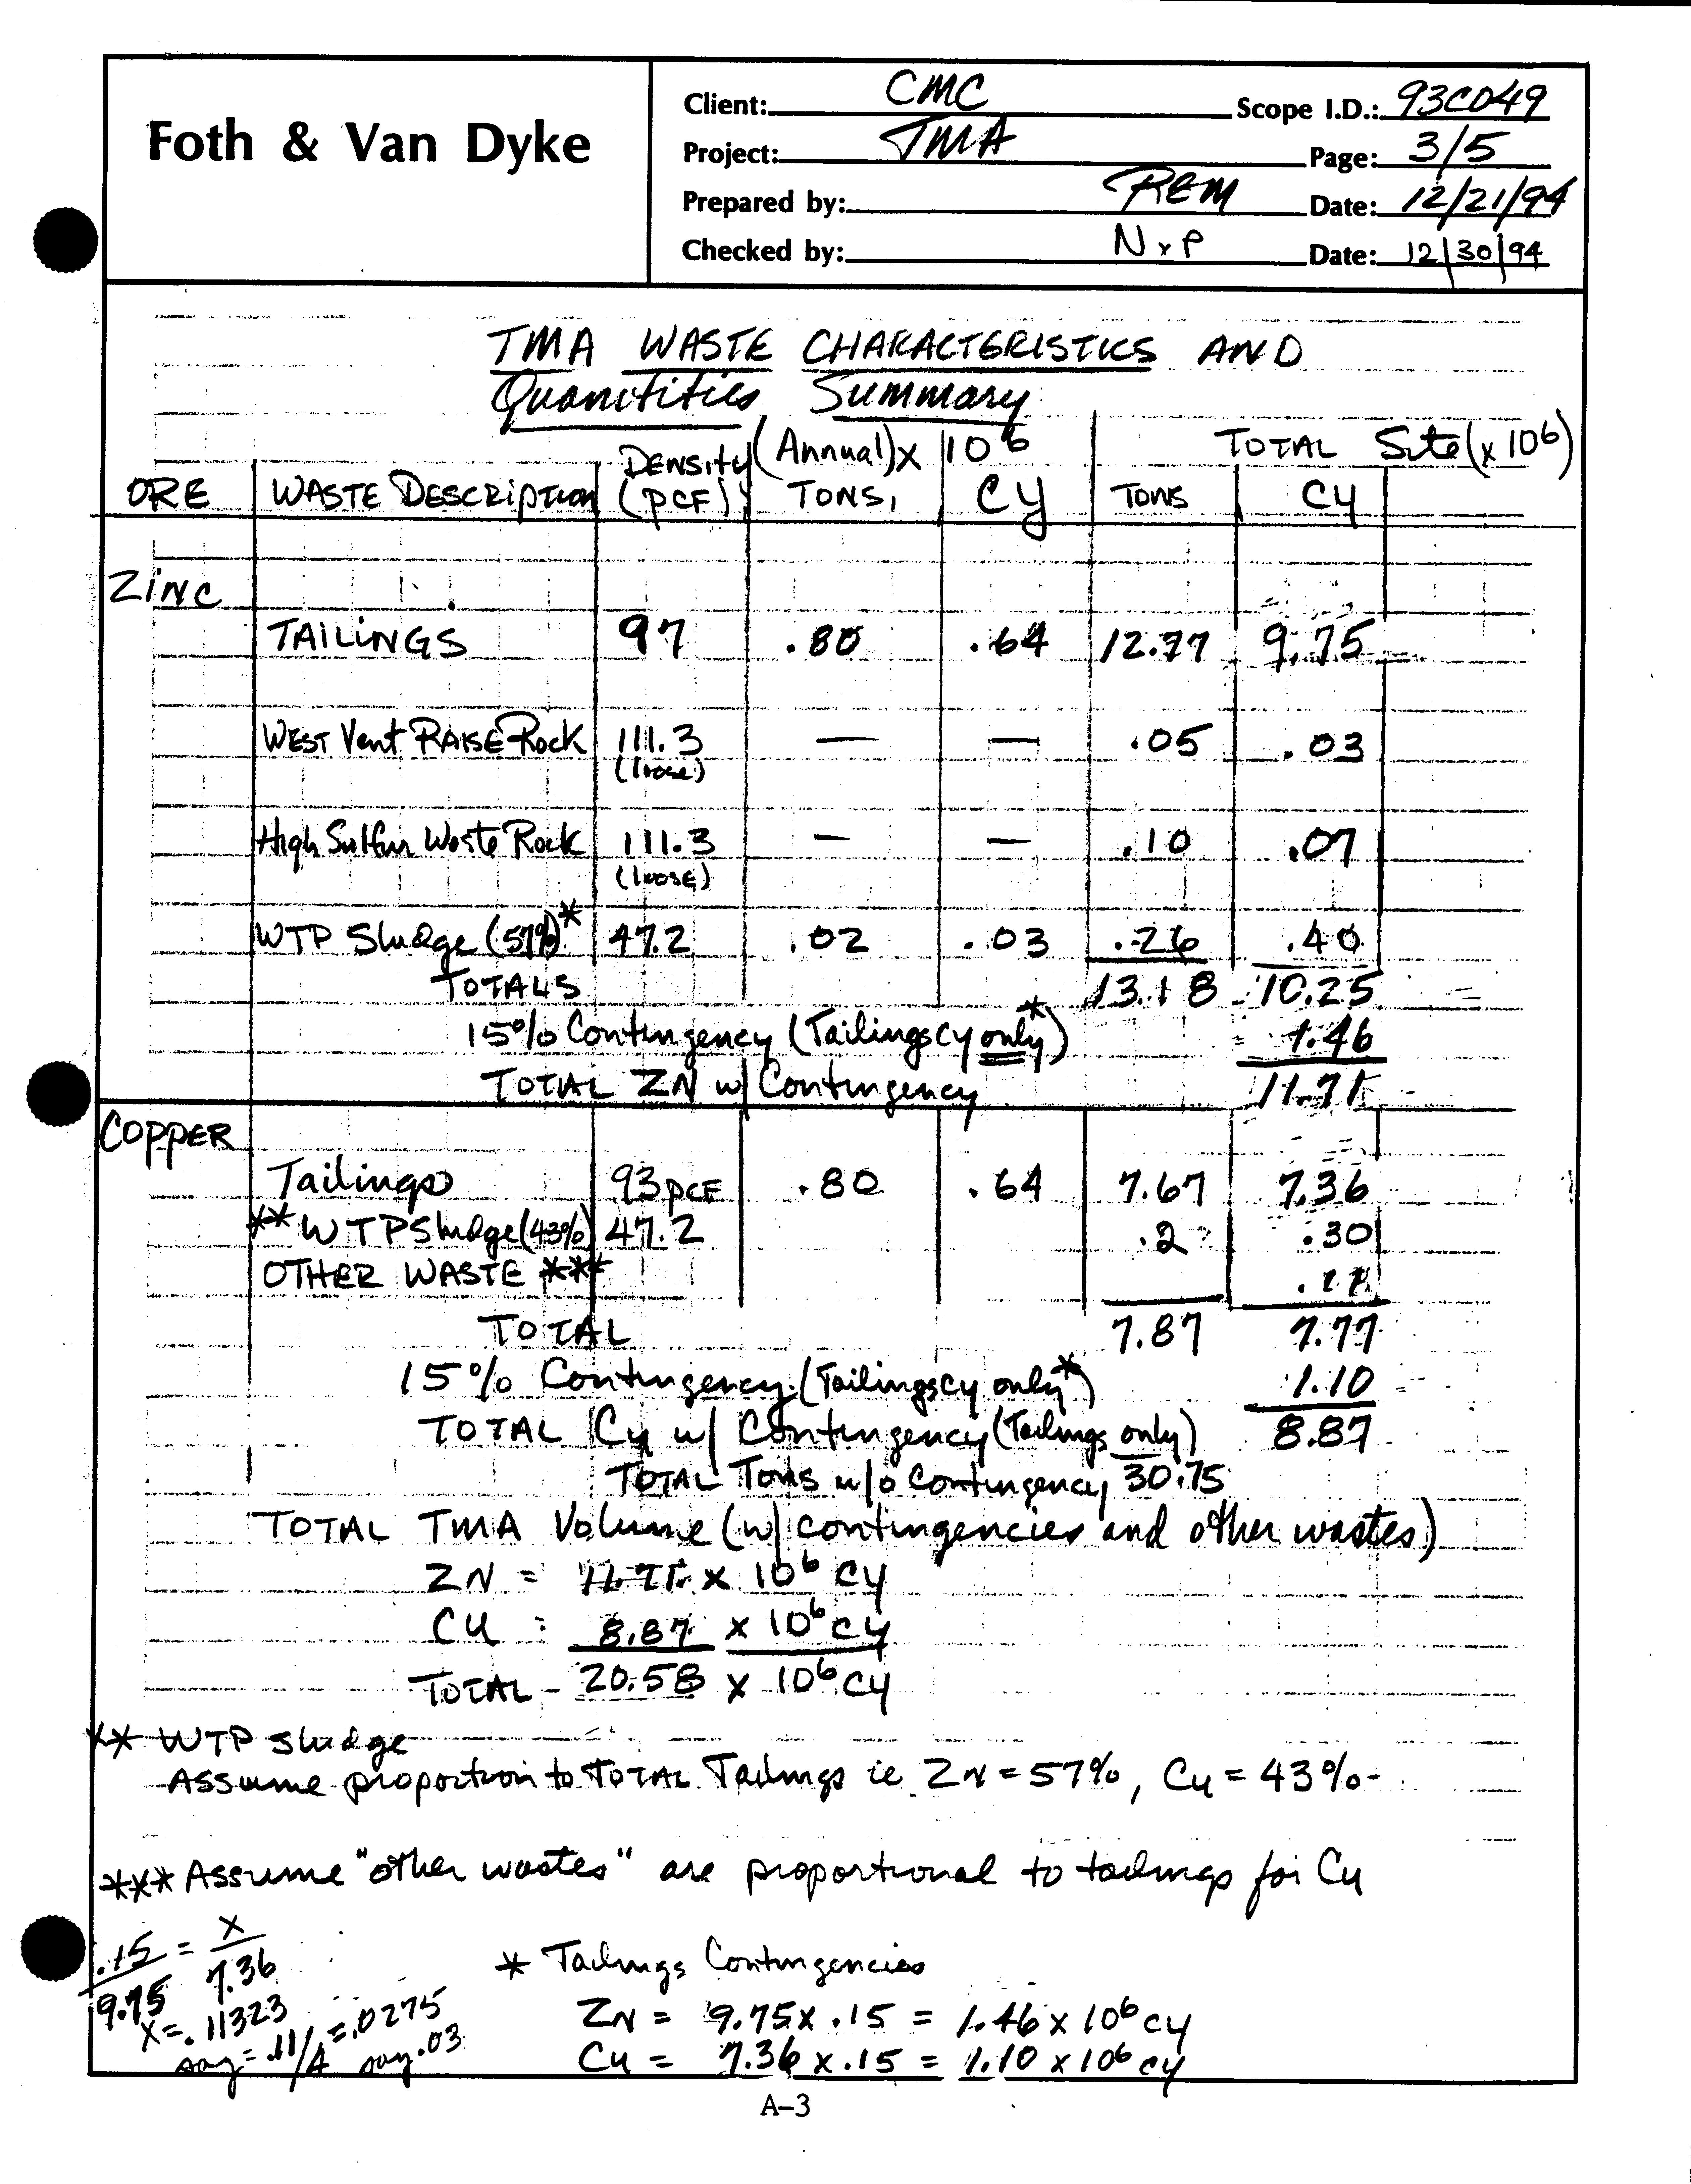 Foth & Van Dyke
Client: CMC Scope I.D.: 93C049
Project: TMA Page: 3/5
Prepared by: REM Date: 12/21/94
Checked by: NxP Date: 12/30/94
TMA WASTE CHARACTERISTICS AND
Quanitities Summary
DENSITY (Annual) x 10^6 TOTAL Site (x 10^6)
ORE WASTE DESCRIPTION (PCF) TONS, CY TONS CY
ZINC
TAILINGS 97 .80 .64 12.77 9.75
WEST Vent RAISE Rock 111.3 — — .05 .03
(loose)
High Sulfur Waste Rock 111.3 — — .10 .07
(loose)
WTP Sludge (57%)* 47.2 .02 .03 .26 .40
TOTALS 13.18 10.25
15% Contingency (Tailings cy only*) 1.46
TOTAL ZN w/ Contingency 11.71
COPPER
Tailings 93 PCF .80 .64 7.67 7.36
** WTP Sludge (43%) 47.2 .2 .30
OTHER WASTE ***
TOTAL 7.87 7.77
15% Contingency (Tailings cy only*) 1.10
TOTAL Cy w/ Contingency (Tailings only) 8.87
TOTAL Tons w/o Contingency 30.75
TOTAL TMA Volume (w/ contingencies and other wastes)
ZN = 11.71 x 10^6 CY
CU = 8.87 x 10^6 CY
TOTAL - 20.58 x 10^6 CY
** WTP Sludge
Assume proportion to TOTAL Tailings ie ZN = 57%, Cu = 43%
*** Assume "other wastes" are proportional to tailings for Cu
.15/9.75 = x/7.36
x = .11323
say = .11/4 = .0275
say .03
* Tailings Contingencies
ZN = 9.75 x .15 = 1.46 x 10^6 CY
Cu = 7.36 x .15 = 1.10 x 10^6 CY
A-3